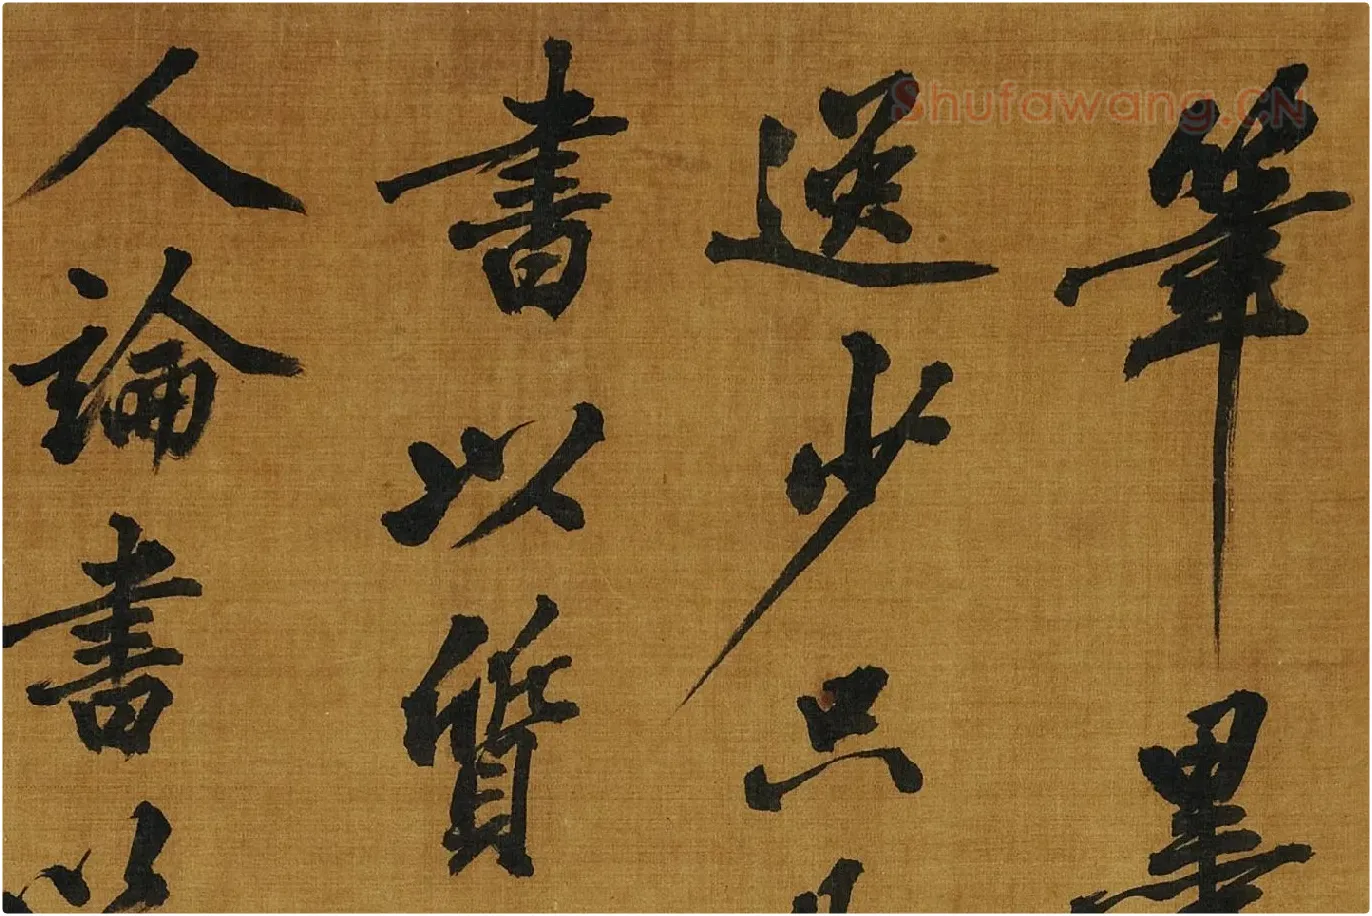 Shufawang.CN
筆墨
逸少只
書以質
人論書